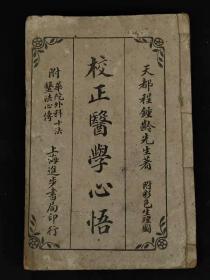 天都程鍾齡先生著
附彩色生理圖
校正醫學心悟
附
華陀外科十法
醫法心傳
上海進步書局印行